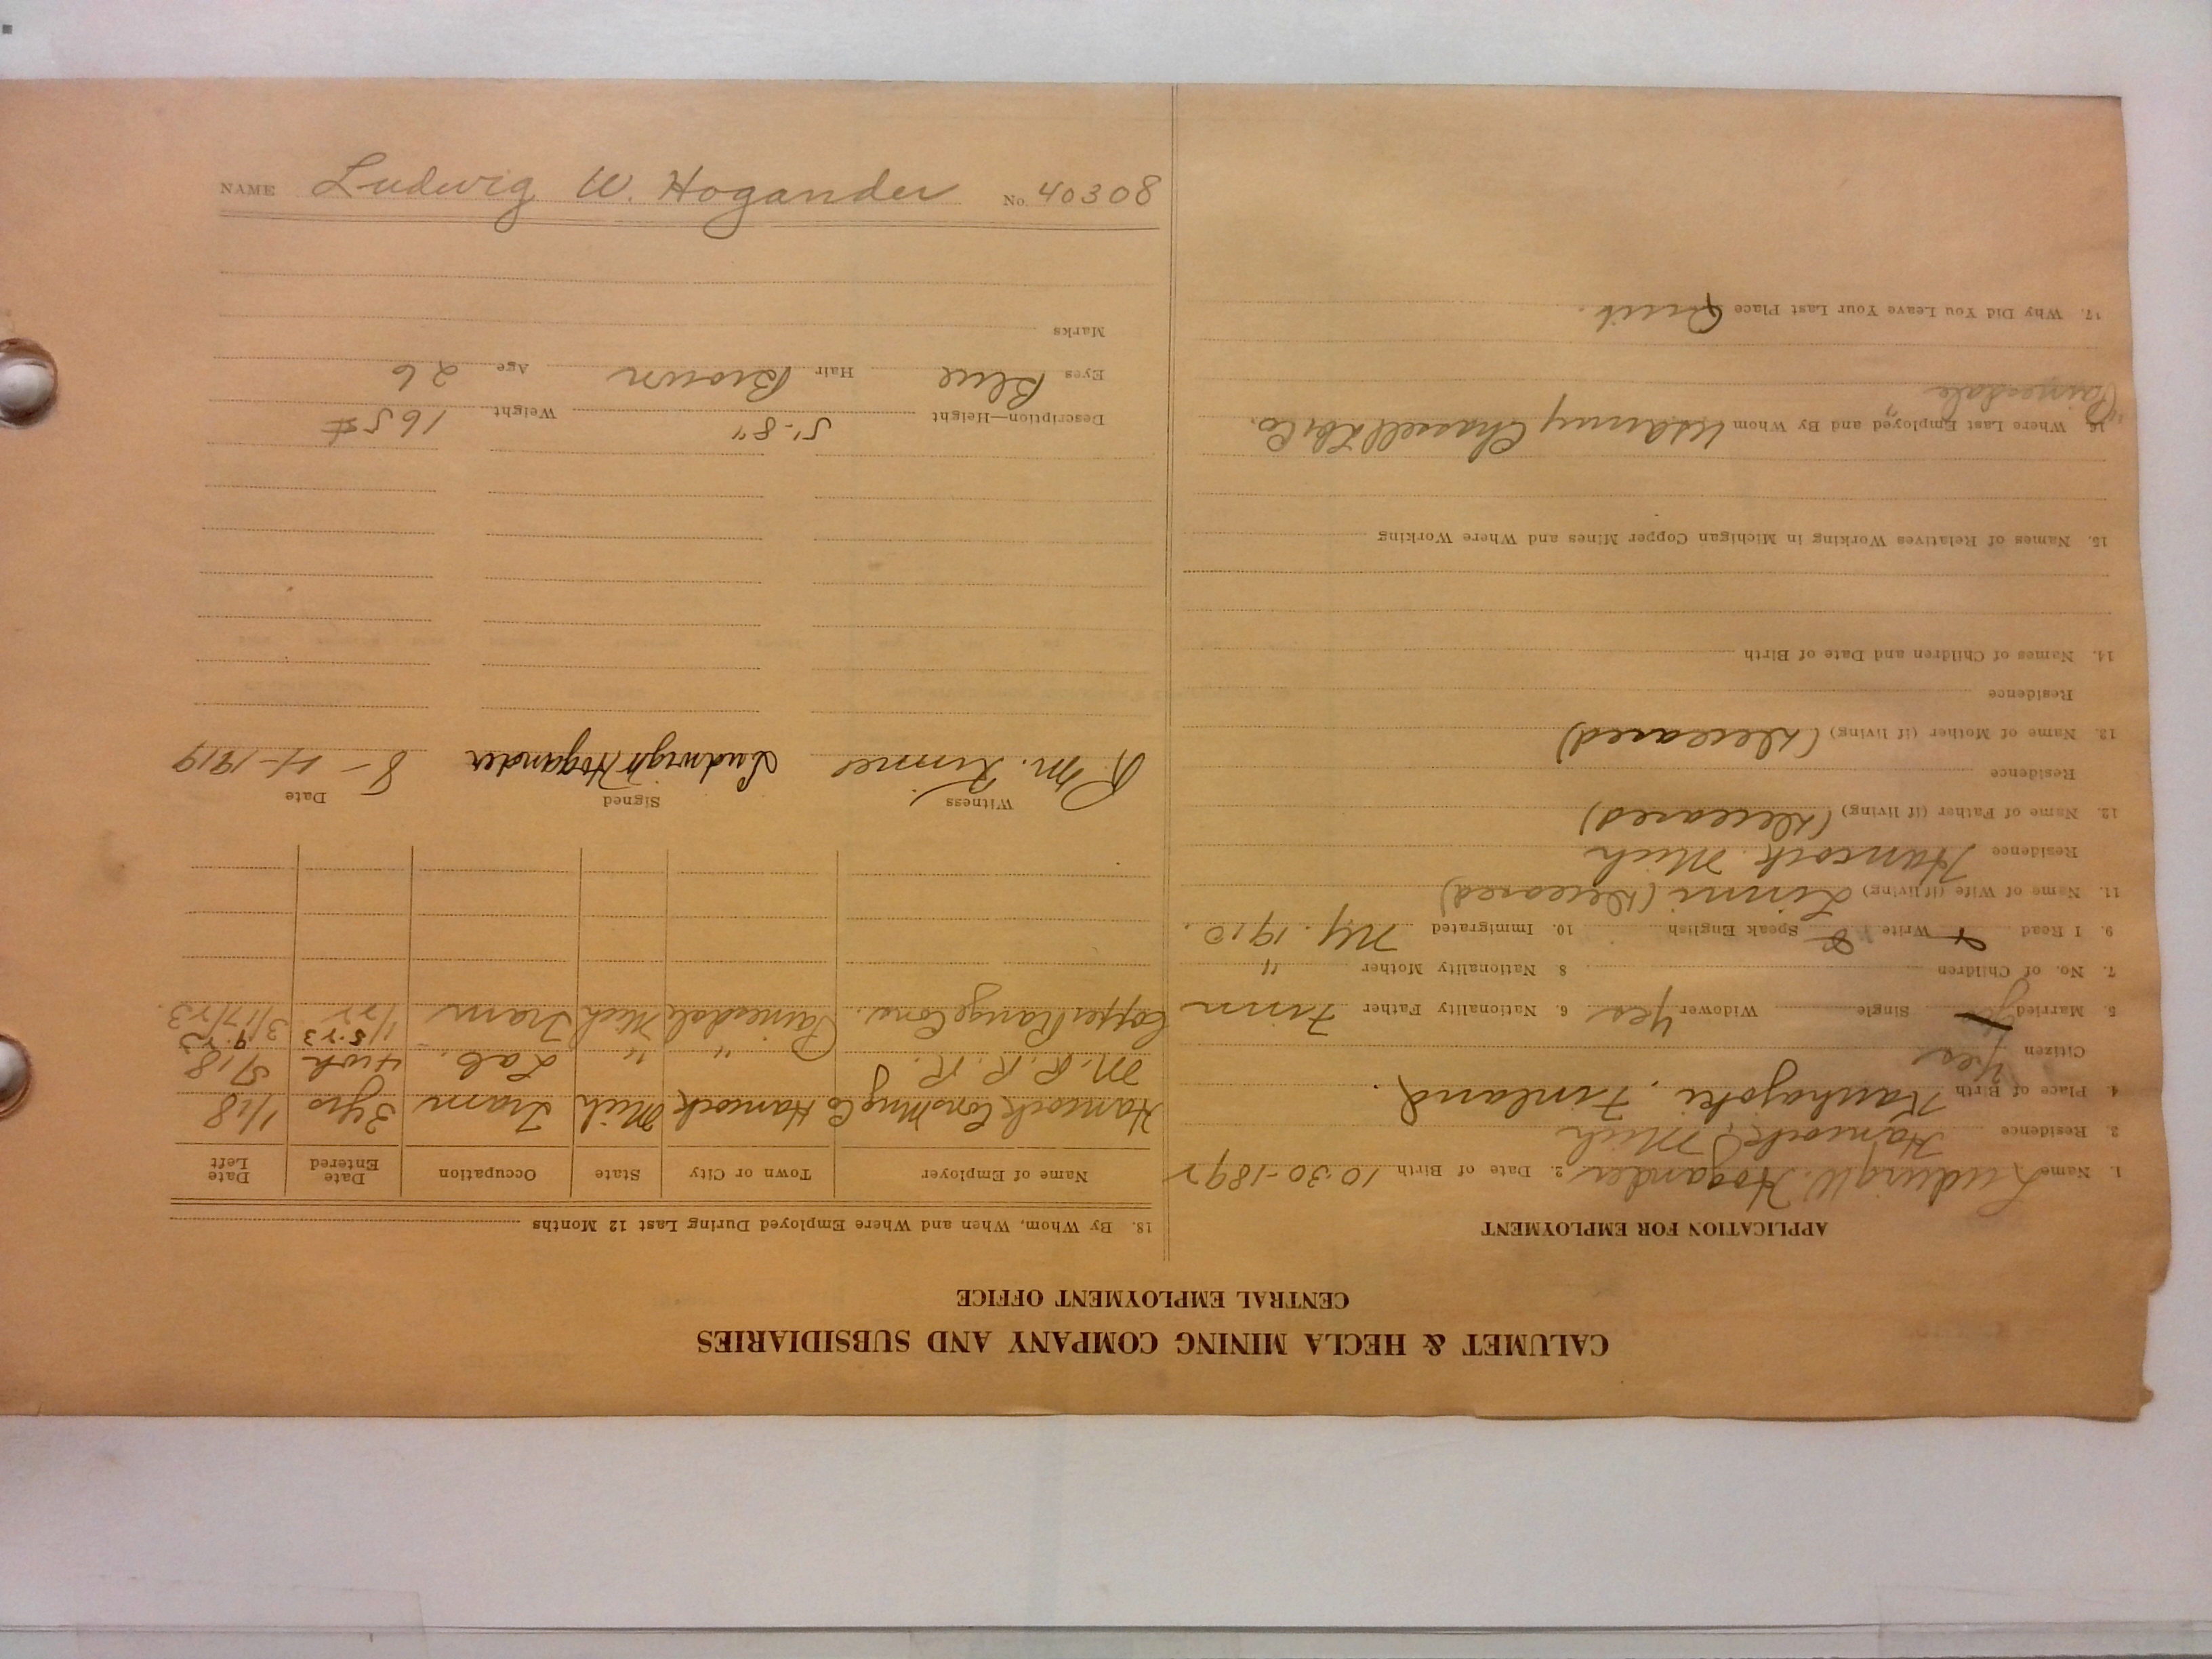 CALUMET & HECLA MINING COMPANY AND SUBSIDIARIES
CENTRAL EMPLOYMENT OFFICE
APPLICATION FOR EMPLOYMENT
1. Name Ludwig W. Hogander 2. Date of Birth 10-30-1892
3. Residence Hancock, Mich
4. Place of Birth Kauhajoki, Finland.
Citizen Yes
5. Married Single Widower Yes 6. Nationality Father Finn
7. No. of Children 8 Nationality Mother "
9. I Read Write Speak English 10. Immigrated NY. 1910.
11. Name of Wife (if living) Linni (Deceased)
Residence Hancock Mich
12. Name of Father (if living) (Deceased)
Residence
13. Name of Mother (if living) (Deceased)
Residence
14. Names of Children and Date of Birth
15. Names of Relatives Working in Michigan Copper Mines and Where Working
16. Where Last Employed and By Whom Chassell Lbr Co.
Painesdale
17. Why Did You Leave Your Last Place Quit.
18. By Whom, When and Where Employed During Last 12 Months
Name of Employer Town or City State Occupation Date Entered Date Left
Hancock Cons Mng Co Hancock Mich Tram 3 yrs 1/18
M. R. R. R. " " Lab. 4 wk 5/18
5-23 9-23
Copper Range Cons. Painesdale Mich Tram 1/22 3/17/23.
Witness Signed Date
R. M. Ludwig Hogander 8-4-1919
Description—Height 5'-8" Weight 165#
Eyes Blue Hair Brown Age 26
Marks
NAME Ludwig W. Hogander No. 40308